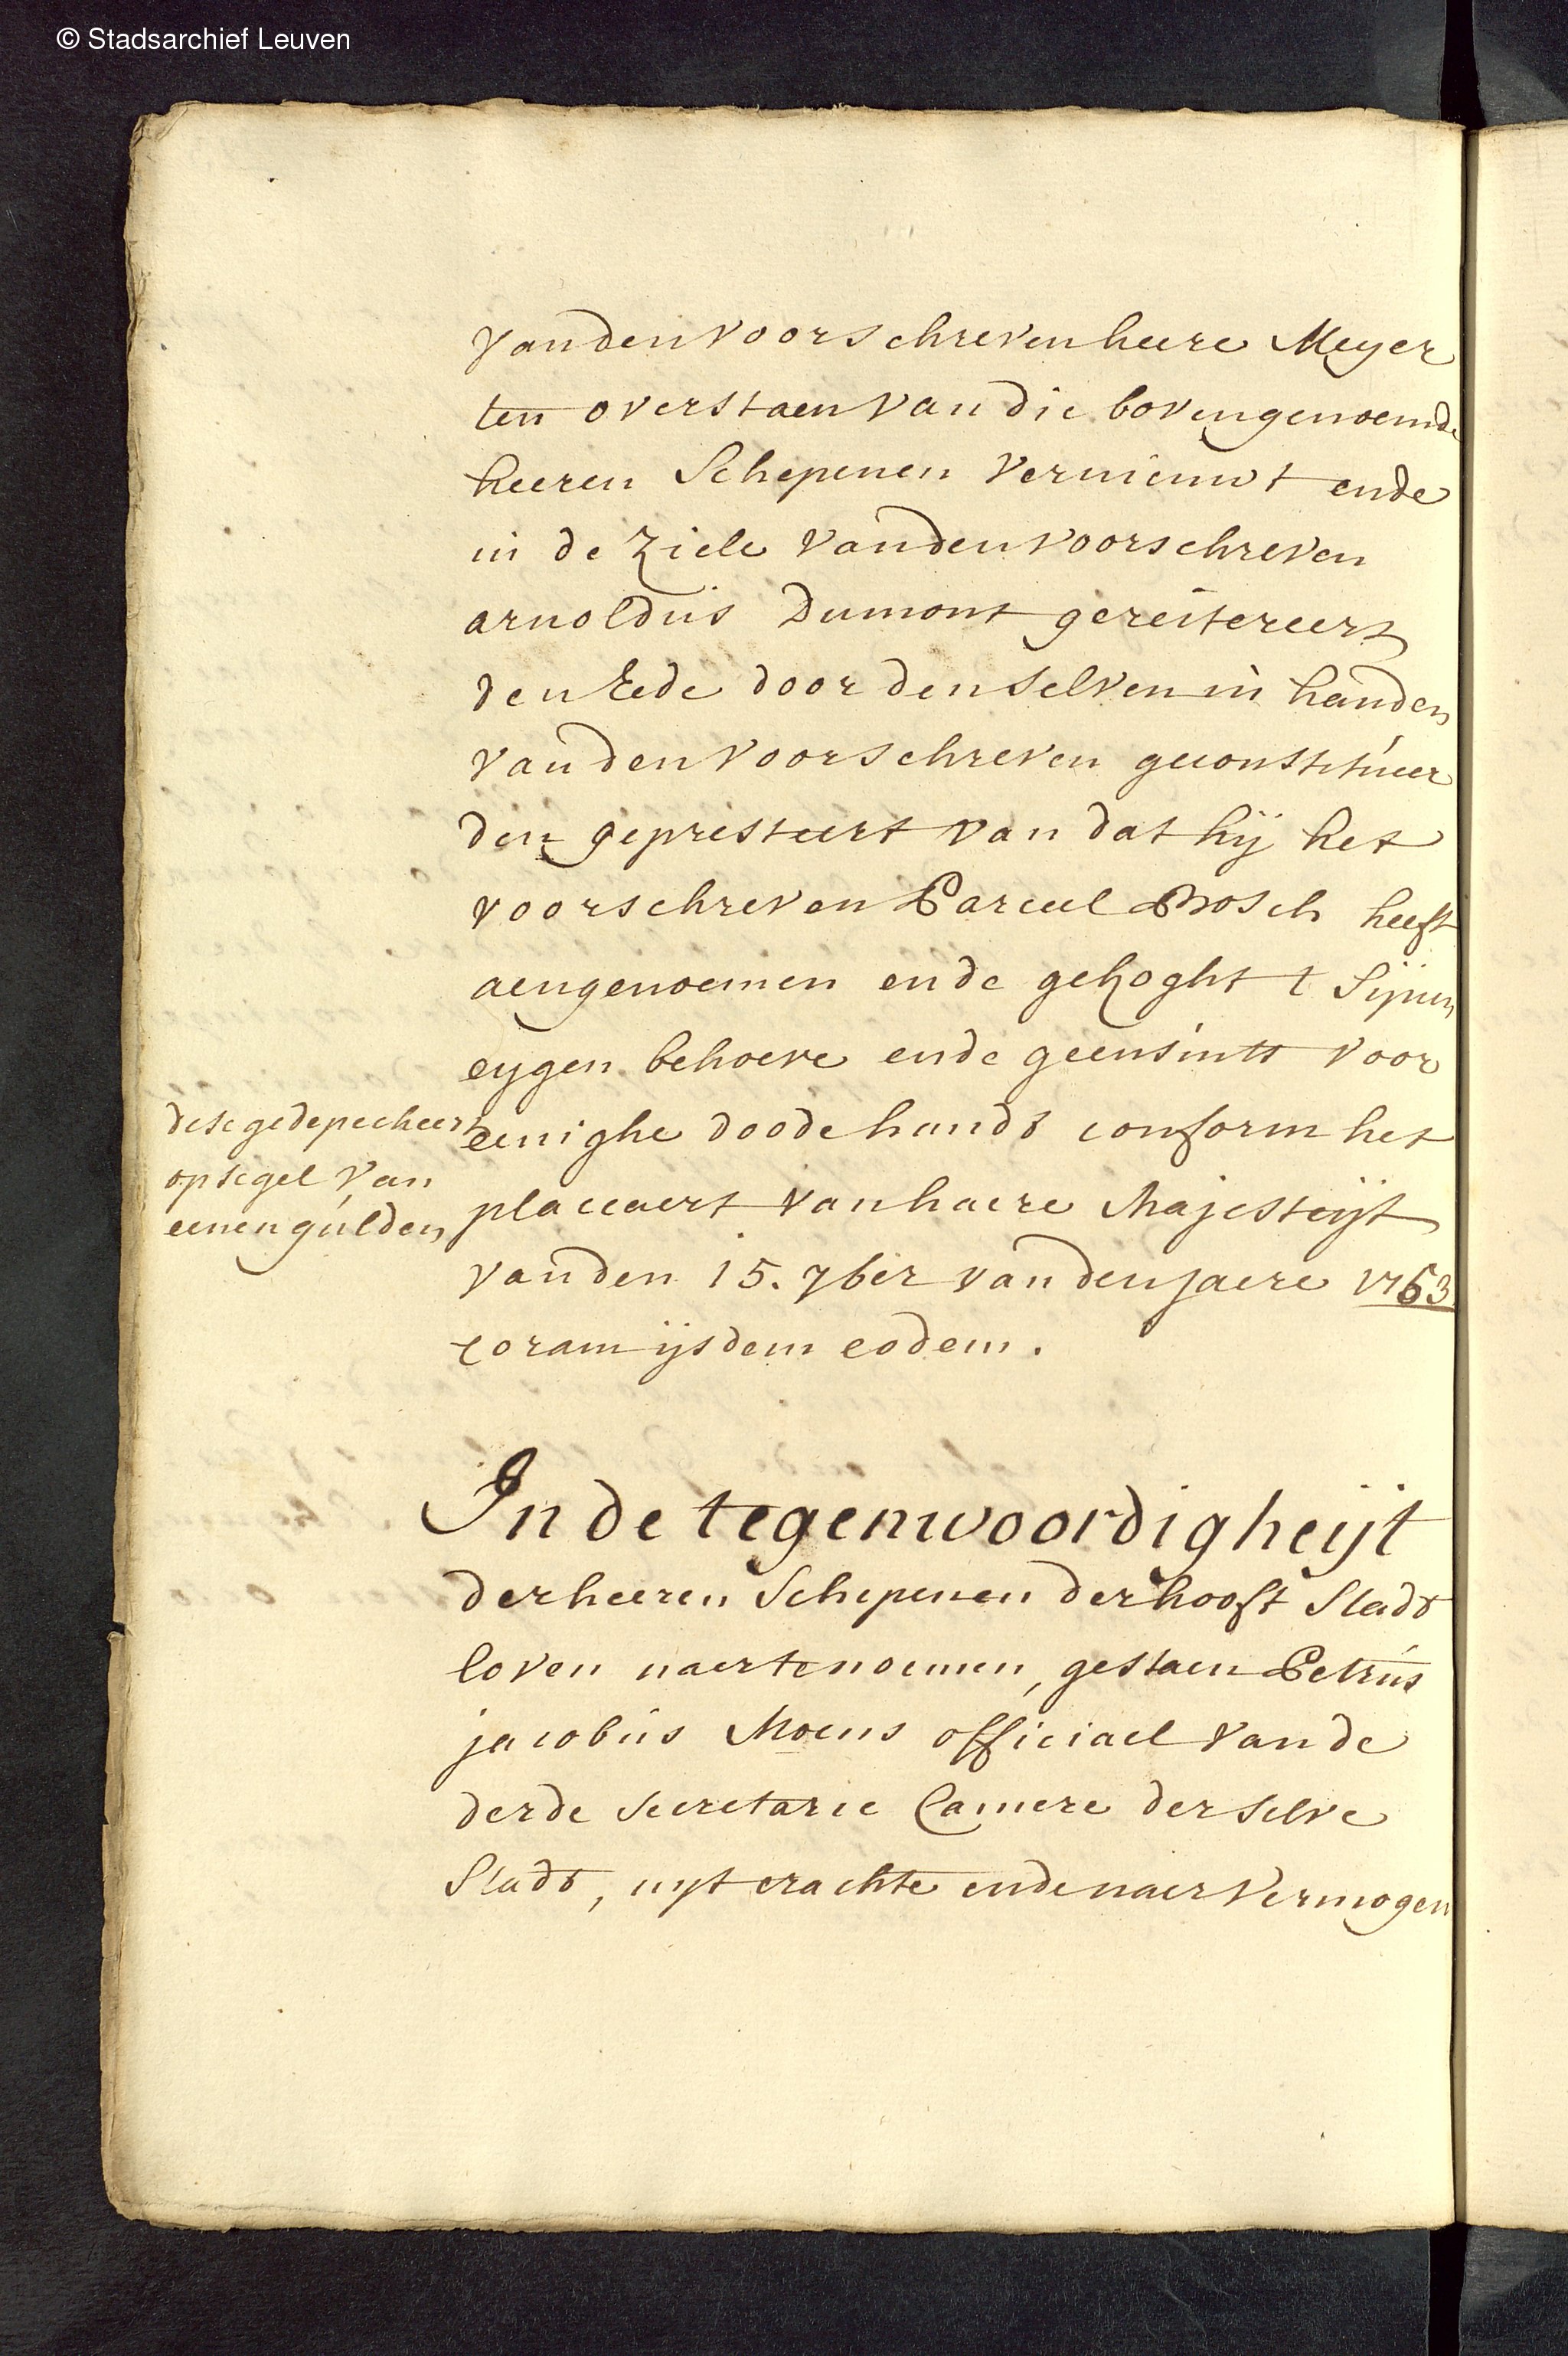 © Stadsarchief Leuven
vanden voorschreven heere Meyer
ten overstaen van die bovengenoemde
heeren Schepenen vernieuwt ende
in de ziele vanden voorschreven
arnoldus Dumont gereïtereert
den Eede door denselven in handen
vanden voorschreven geconstitueer
den gepresteert van dat hij het
voorschreven Parceel Bosch heeft
aengenoemen ende gekoght t Sijnen
eygen behoeve ende geensints voor
eenighe doode handt conform het
placcaert van haere Majesteijt
vanden 15. 7ber vanden jaere 1753
coram ijsdem eodem.
dese gedepecheert
op segel van
eenen gulden
In de tegenwoordigheijt
der heeren Schepenen der hooft Stadt
loven naertenoemen, gestaen Petrus
jacobus Moens officiael van de
derde Secretarie Camere der selve
Stadt, uyt crachte ende naer vermogen